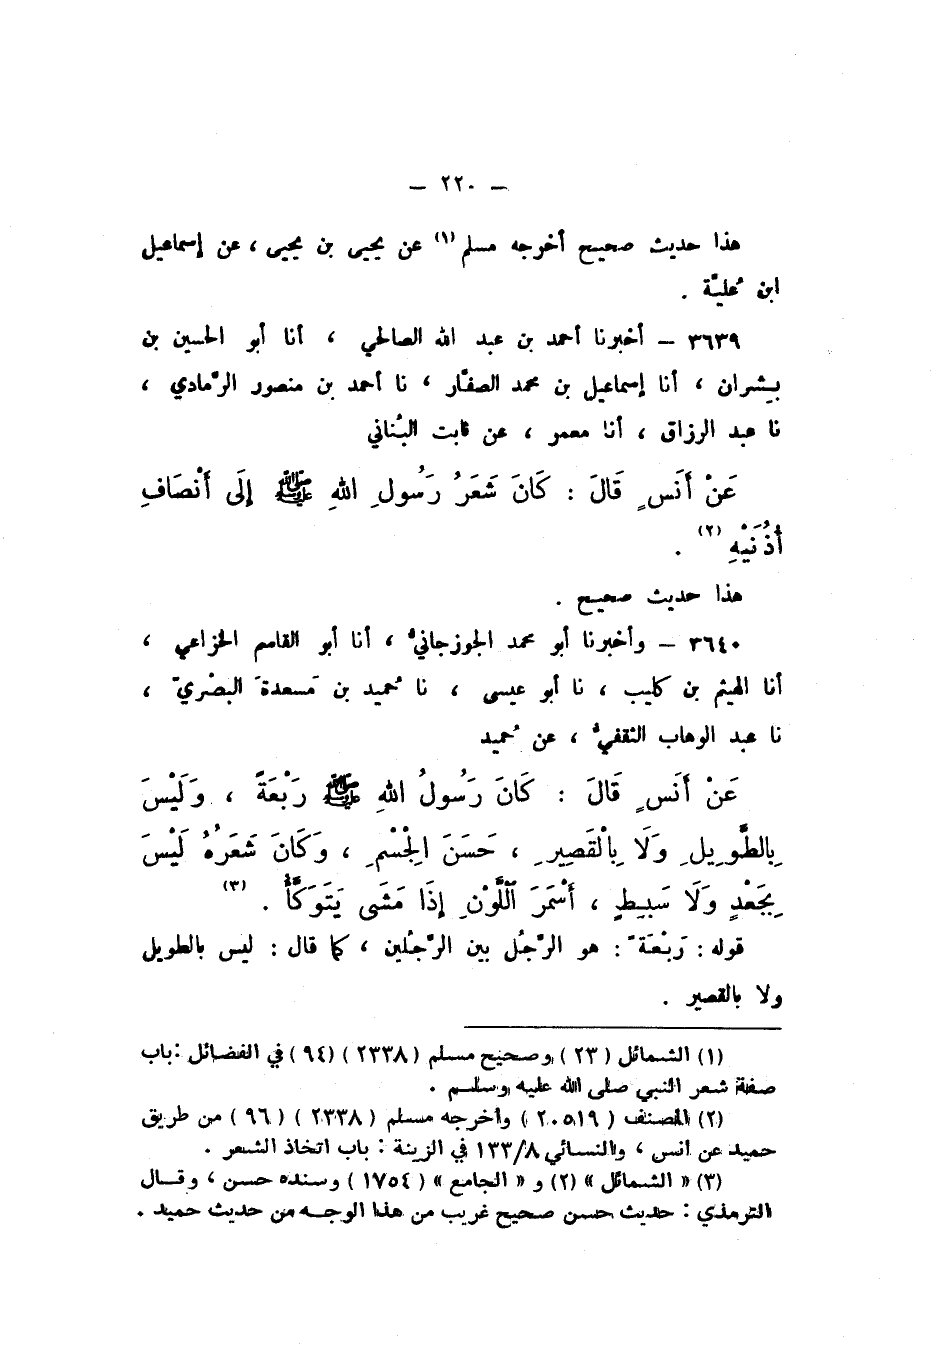 — ٢٢٠ —
هذا حديث صحيح أخرجه مسلم (١) عن يحيى بن يحيى ، عن إسماعيل
ابن عُليَّة .
٣٦٣٩ – أخبرنا أحمد بن عبد الله الصالحي ، أنا أبو الحسين بن
بشران ، أنا إسماعيل بن محمد الصفَّار ، نا أحمد بن منصور الرَّمادي ،
نا عبد الرزاق ، أنا معمر ، عن ثابت البُناني
عَنْ أَنَسٍ قَالَ : كَانَ شَعَرُ رَسُولِ اللهِ ﷺ إِلَى أَنْصَافِ
أُذُنَيْهِ (٢) .
هذا حديث صحيح .
٣٦٤٠ – وأخبرنا أبو محمد الجوزجانيُّ ، أنا أبو القاسم الخزاعي ،
أنا الهيثم بن كليب ، نا أبو عيسى ، نا حُميد بن مَسعدةَ البصْريّ ،
نا عبد الوهاب الثقفيُّ ، عن حُميد
عَنْ أَنَسٍ قَالَ : كَانَ رَسُولُ اللهِ ﷺ رَبْعَةً ، وَلَيْسَ
بِالطَّوِيلِ وَلَا بِالْقَصِيرِ ، حَسَنَ الْجِسْمِ ، وَكَانَ شَعَرُهُ لَيْسَ
بِجَعْدٍ وَلَا سَبِطٍ ، أَسْمَرَ اللَّوْنِ إِذَا مَشَى يَتَوَكَّأُ . (٣)
قوله : رَبْعَةً : هو الرَّجُل بين الرَّجُلين ، كما قال : ليس بالطويل
ولا بالقصير .
(١) الشمائل ( ٢٣ ) وصحيح مسلم ( ٢٣٣٨ ) ( ٩٤ ) في الفضائل : باب
صفة شعر النبي صلى الله عليه وسلم .
(٢) المصنف ( ٢٠٥١٩ ) وأخرجه مسلم ( ٢٣٣٨ ) ( ٩٦ ) من طريق
حميد عن أنس ، والنسائي ١٣٣/٨ في الزينة : باب اتخاذ الشعر .
(٣) « الشمائل » (٢) و « الجامع » ( ١٧٥٤ ) وسنده حسن ، وقال
الترمذي : حديث حسن صحيح غريب من هذا الوجه من حديث حميد .